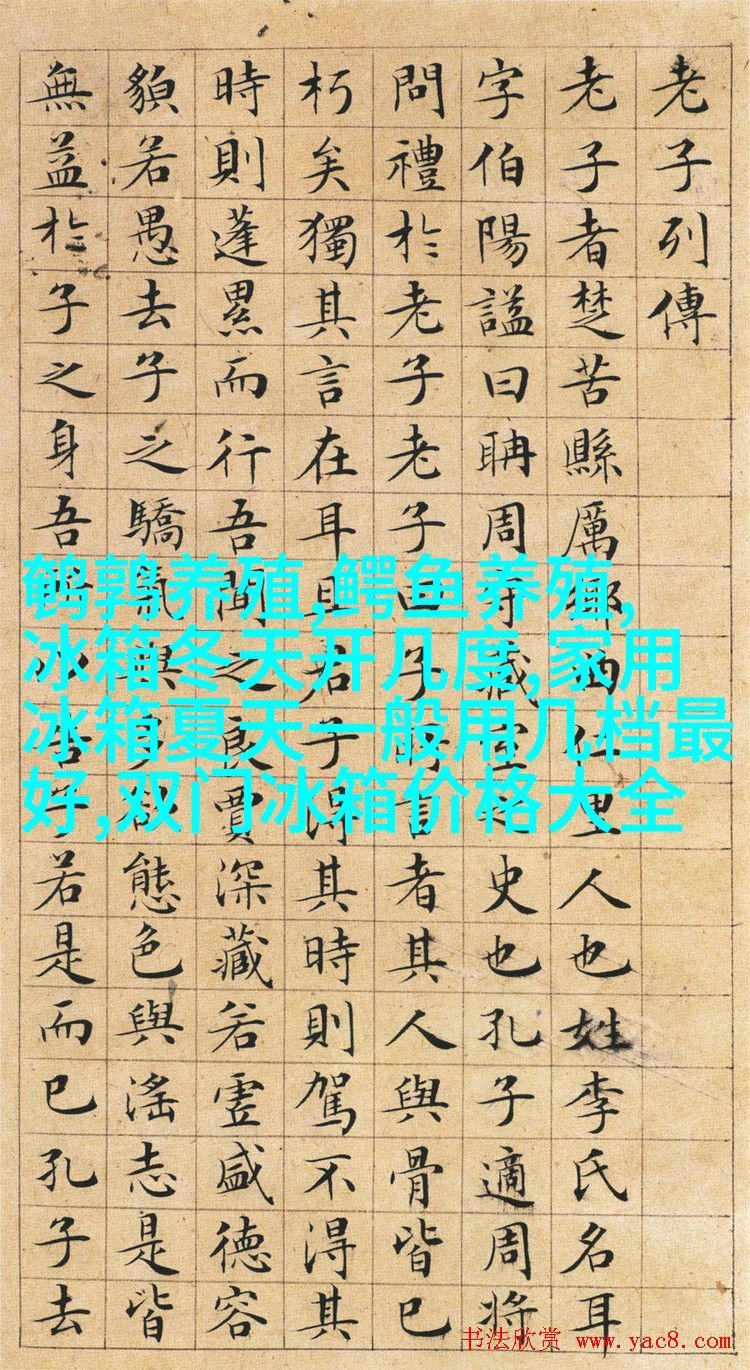 老子列傳
老子者楚苦縣厲鄉曲仁里人也姓李氏名耳
字伯陽謚曰聃周守藏室之史也孔子適周將
問禮於老子老子曰子所言者其人與骨皆已
朽矣獨其言在耳且君子得其時則駕不得其
時則蓬累而行吾聞之良賈深藏若虛盛德容
貌若愚去子之驕氣與多欲態色與淫志是皆
無益於子之身吾所以告子若是而已孔子去
鹌鹑养殖,鳄鱼养殖,
冰箱冬天开几度,家用
冰箱夏天一般用几档最
好,双门冰箱价格大全
书法欣赏 www.yac8.com